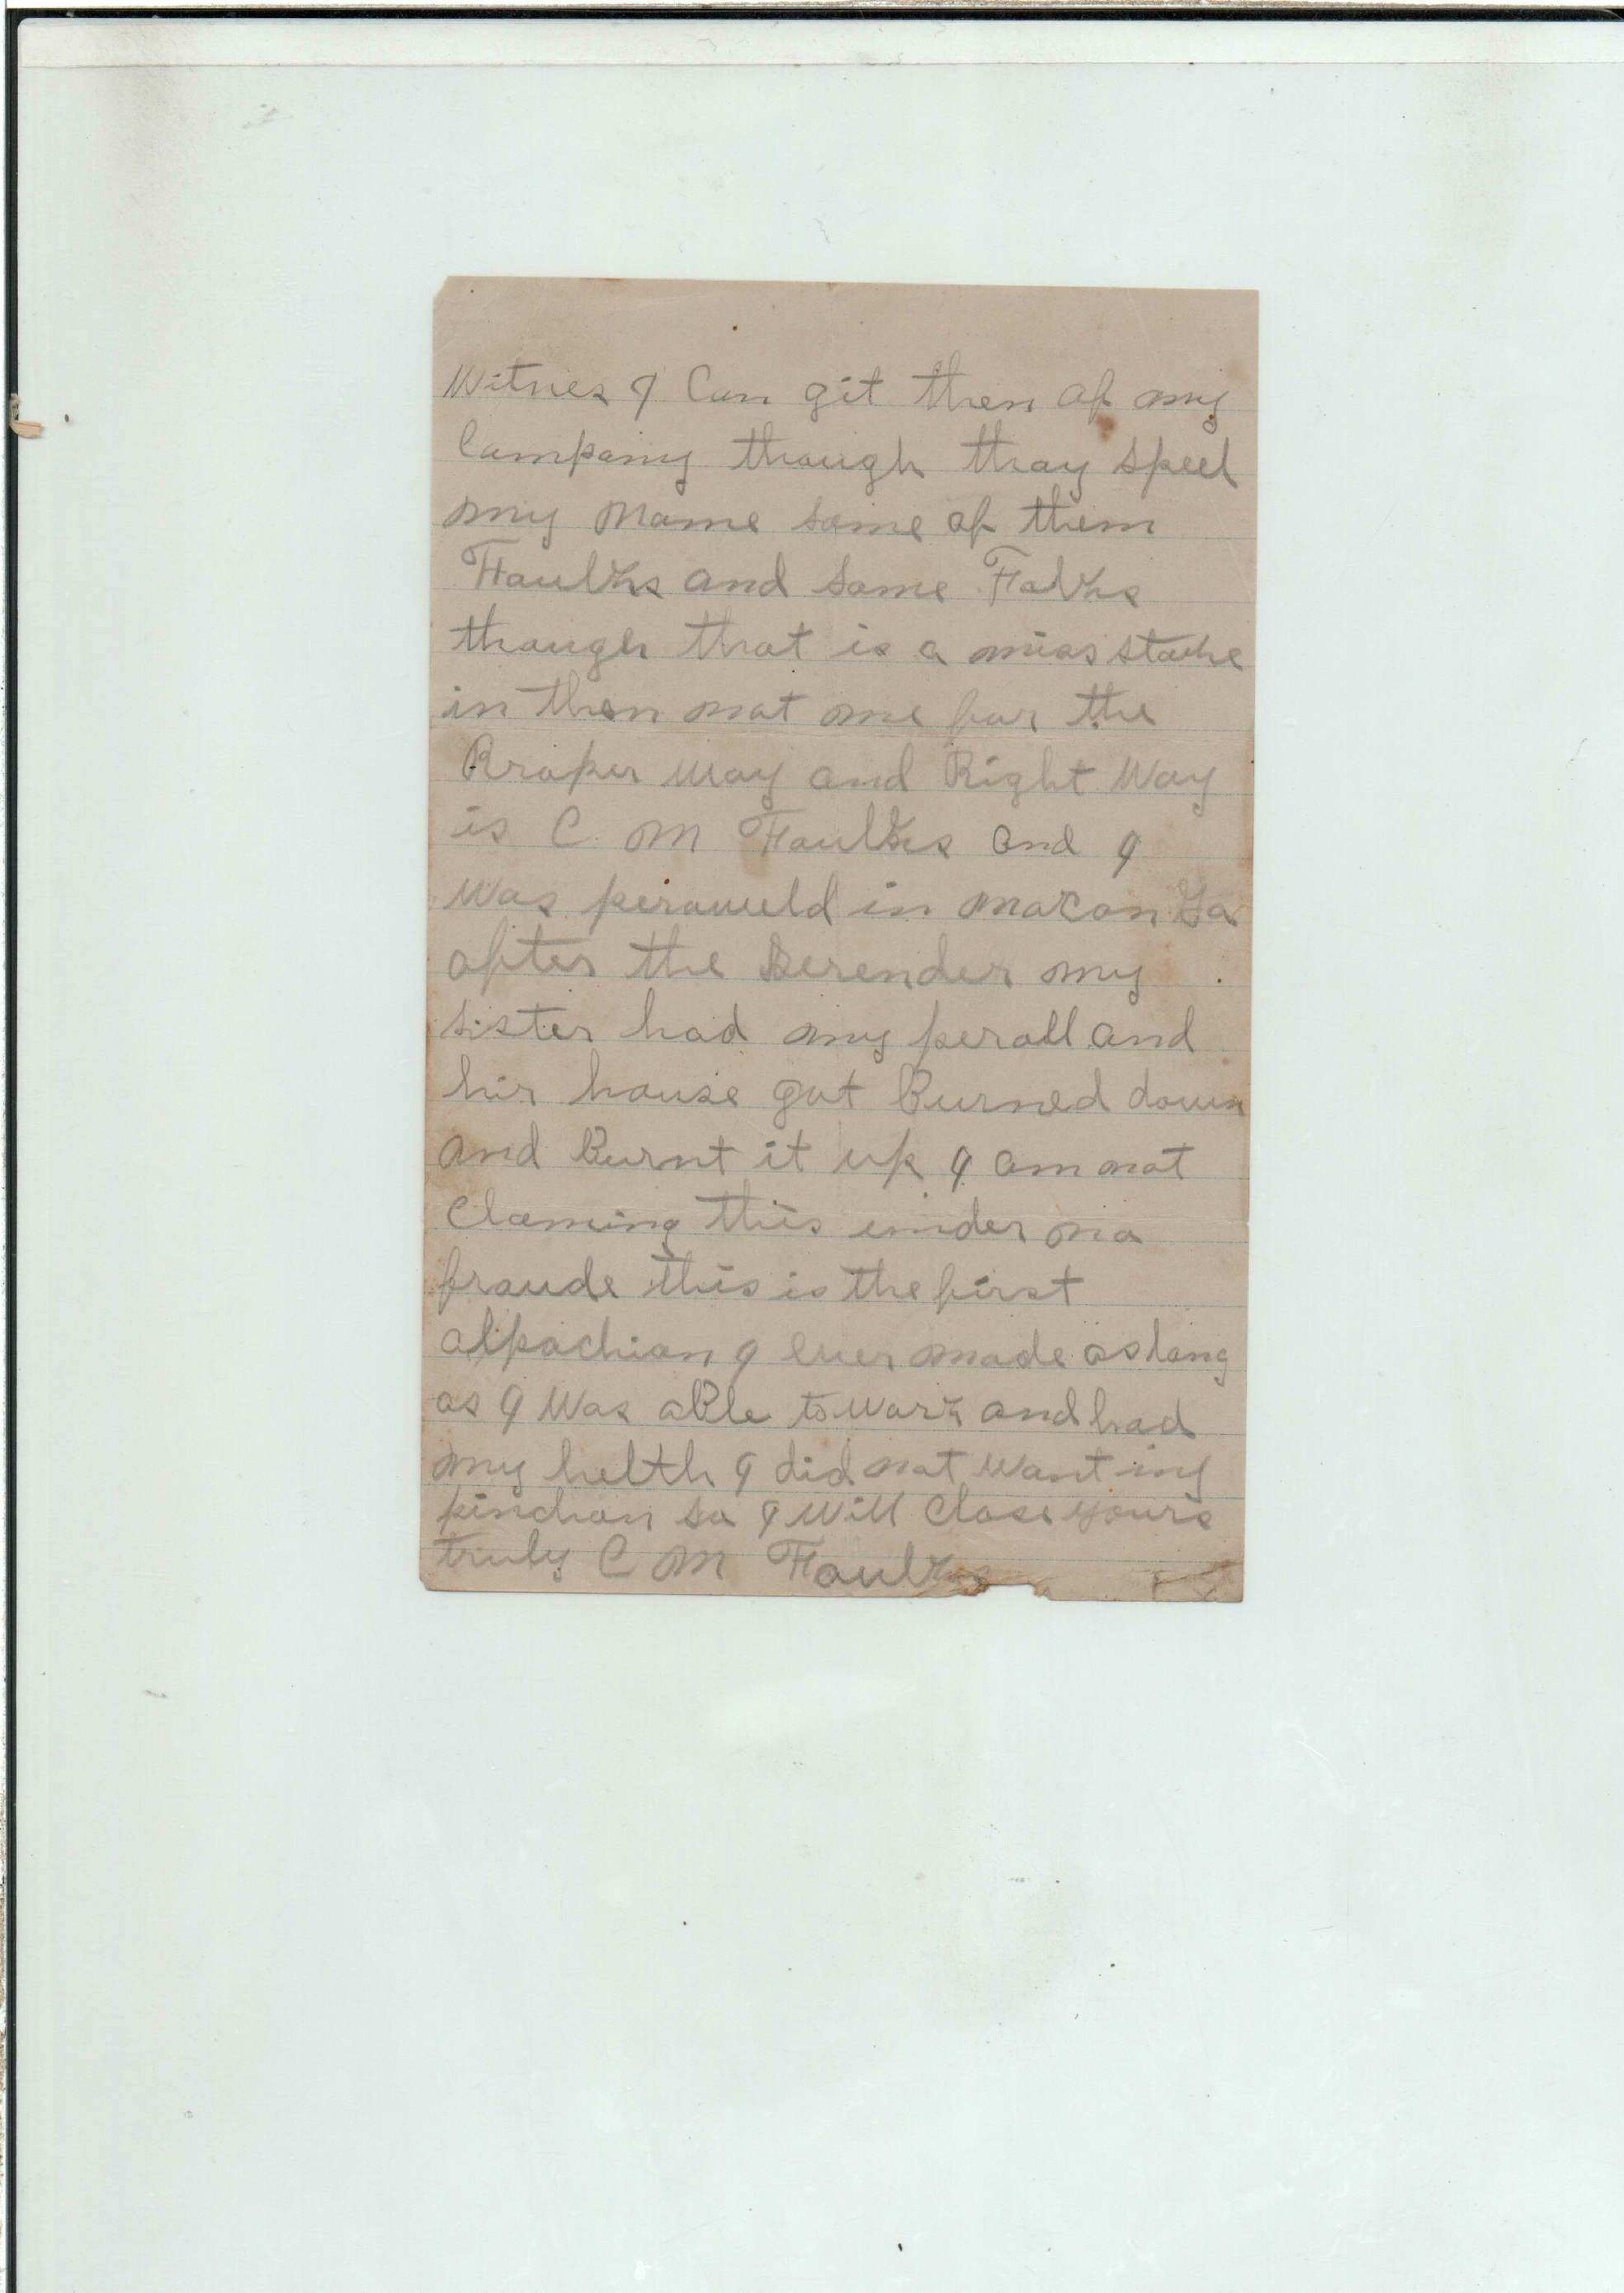 Witnes I Can git then of my
Company though thay speel
my Name some of them
Faulks and some Falks
though that is a miss stacke
in then not me for the
Rroper way and Right Way
is C M Faulks and I
Was perouueld in macon Ga
after the Serender my
sister had my peroll and
hir house got Burned down
and Burnt it up I am not
Claming this under no
fraude this is the first
alpachion I ever made as long
as I Was able to work and had
my helth I did not want iny
pinchon so I Will Close yours
truly C M Faulks